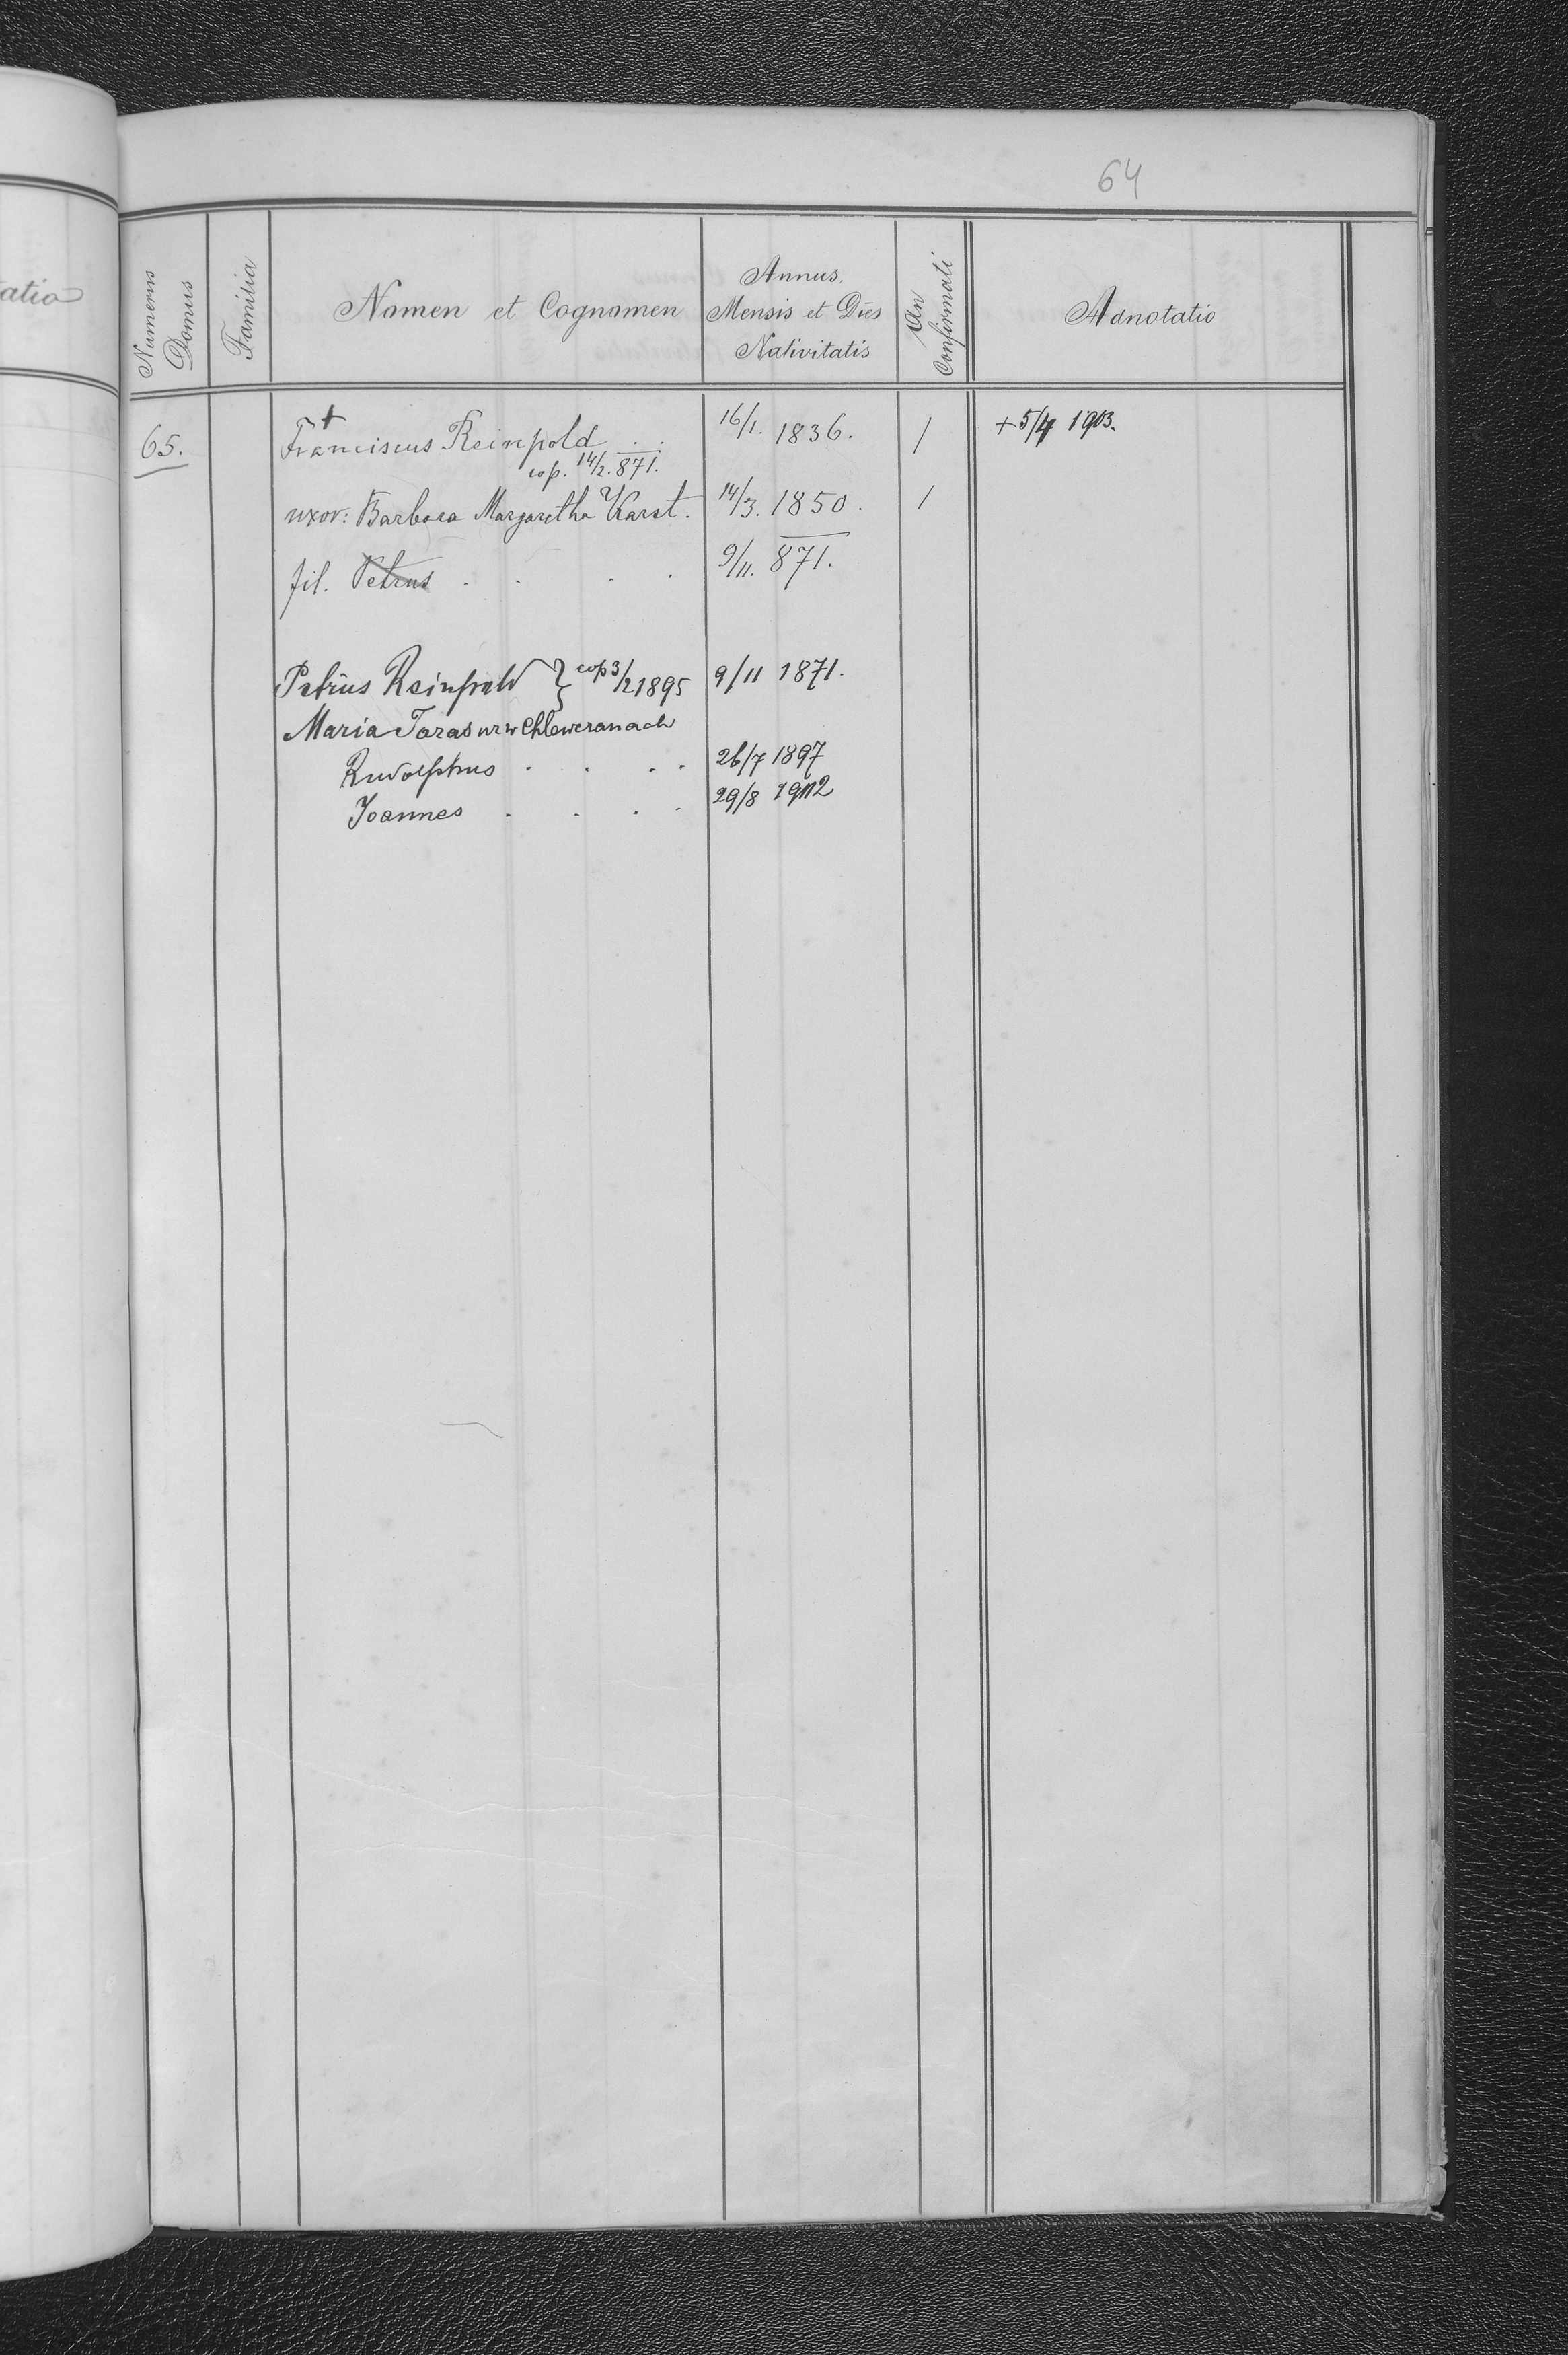 64
atio
Numerus Domus
Familia
Nomen et Cognomen
Annus, Mensis et Dies Nativitatis
An Confirmati
Adnotatio
65. Franciscus Reinpold . . 16/1. 1836. / + 5/4 1903.
cop. 14/2. 871.
uxor: Barbara Margaretha Karst. 14/3. 1850. /
fil. Petrus . . . . 9/11. 871.
Petrus Reinpold } cop 3/2 1895 9/11 1871.
Maria Taras
Rudolphus . . . . 26/7 1897
Joannes . . . . 29/8 1902